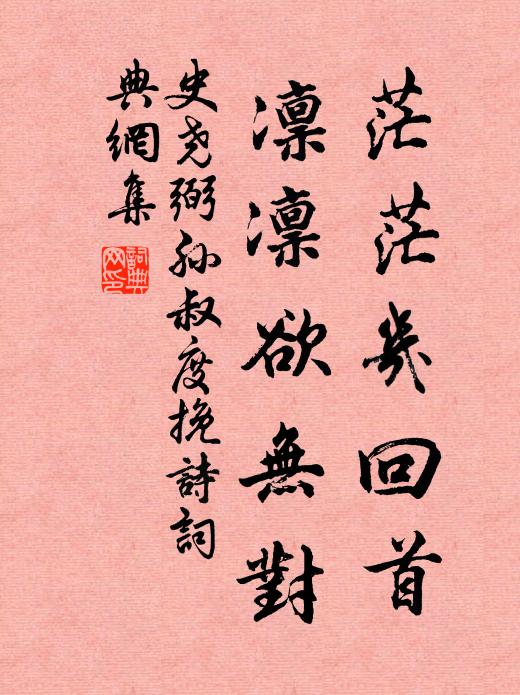 茫茫幾回首
凜凜欲無對
史堯弼孫叔度挽詩詞
典網集
詞典網印